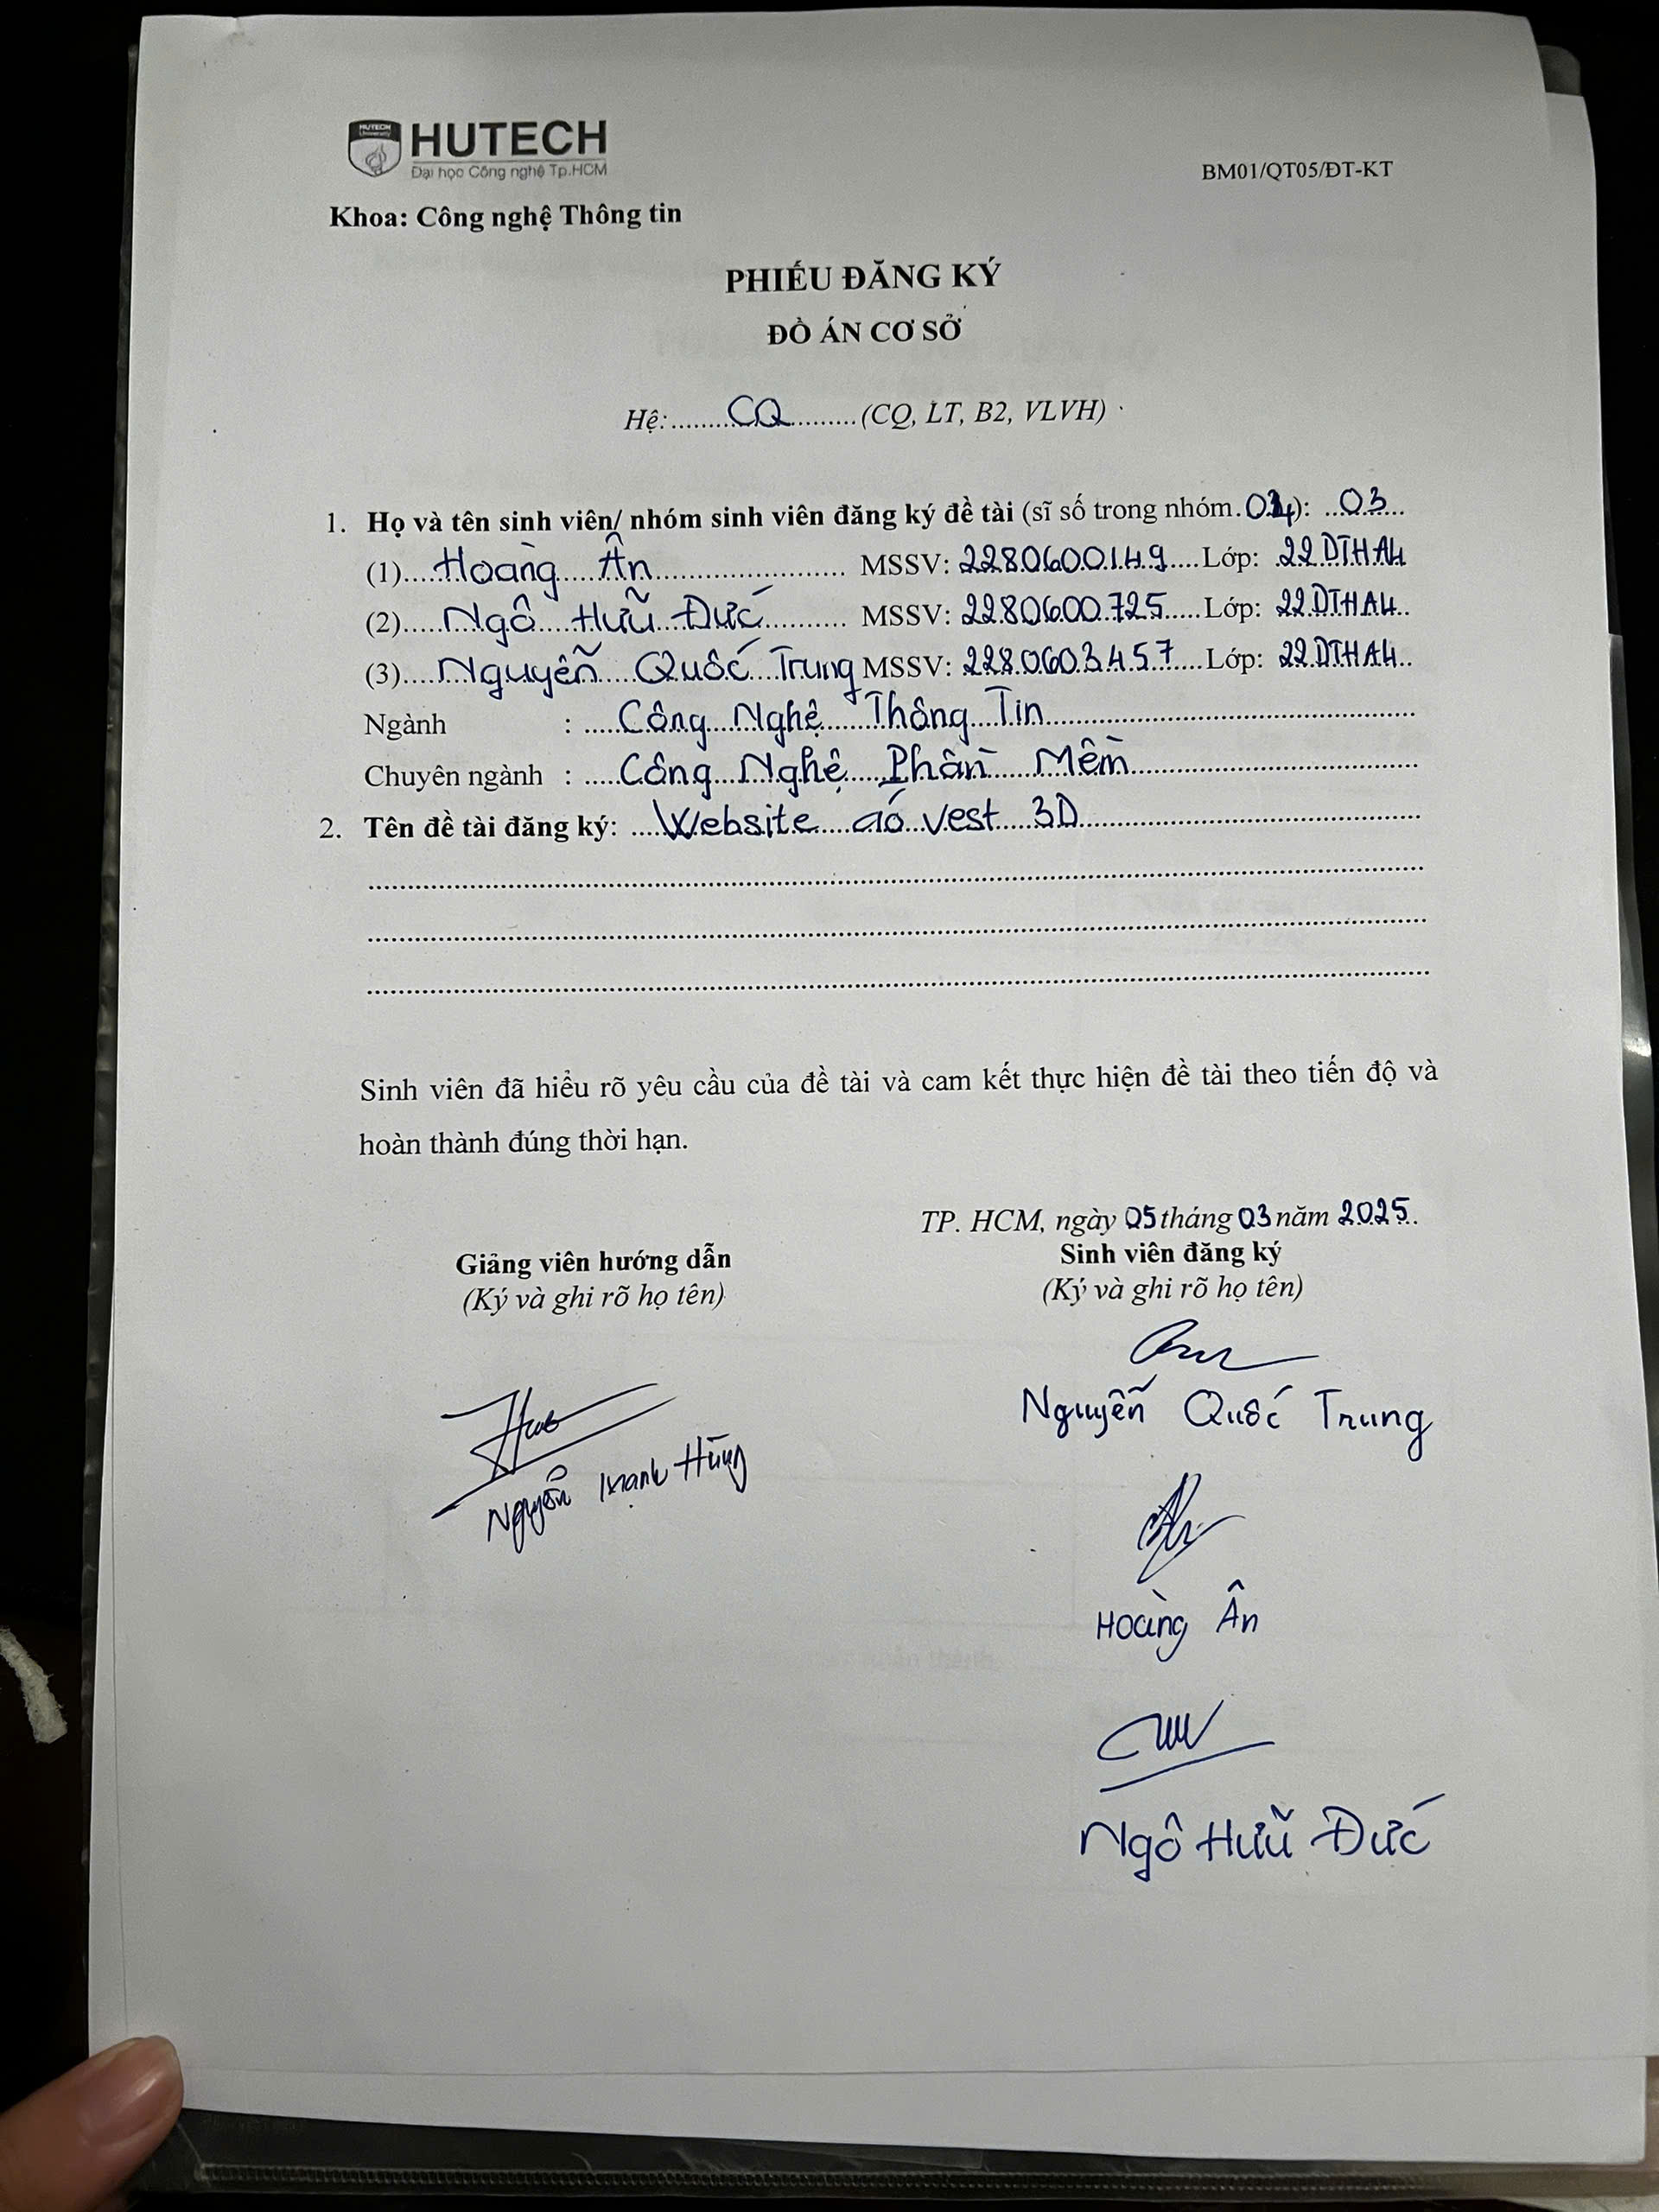 HUTECH
Đại học Công nghệ Tp.HCM
BM01/QT05/ĐT-KT
Khoa: Công nghệ Thông tin
PHIẾU ĐĂNG KÝ
ĐỒ ÁN CƠ SỞ
Hệ:.........CQ..........(CQ, LT, B2, VLVH)
1. Họ và tên sinh viên/ nhóm sinh viên đăng ký đề tài (sĩ số trong nhóm.....): ...03...
(1)....Hoàng Ân........................ MSSV: 2280600149....Lớp: 22DTHA4
(2).....Ngô Hữu Đức.......... MSSV: 2280600725.....Lớp: 22DTHA4..
(3)....Nguyễn Quốc Trung MSSV: 2280603457....Lớp: 22DTHA4..
Ngành : .....Công Nghệ Thông Tin................
Chuyên ngành : .....Công Nghệ Phần Mềm................
2. Tên đề tài đăng ký: ....Website áo vest 3D................
Sinh viên đã hiểu rõ yêu cầu của đề tài và cam kết thực hiện đề tài theo tiến độ và
hoàn thành đúng thời hạn.
TP. HCM, ngày 05 tháng 03 năm 2025..
Giảng viên hướng dẫn
(Ký và ghi rõ họ tên)
Nguyễn Mạnh Hùng
Sinh viên đăng ký
(Ký và ghi rõ họ tên)
Nguyễn Quốc Trung
Hoàng Ân
Ngô Hữu Đức